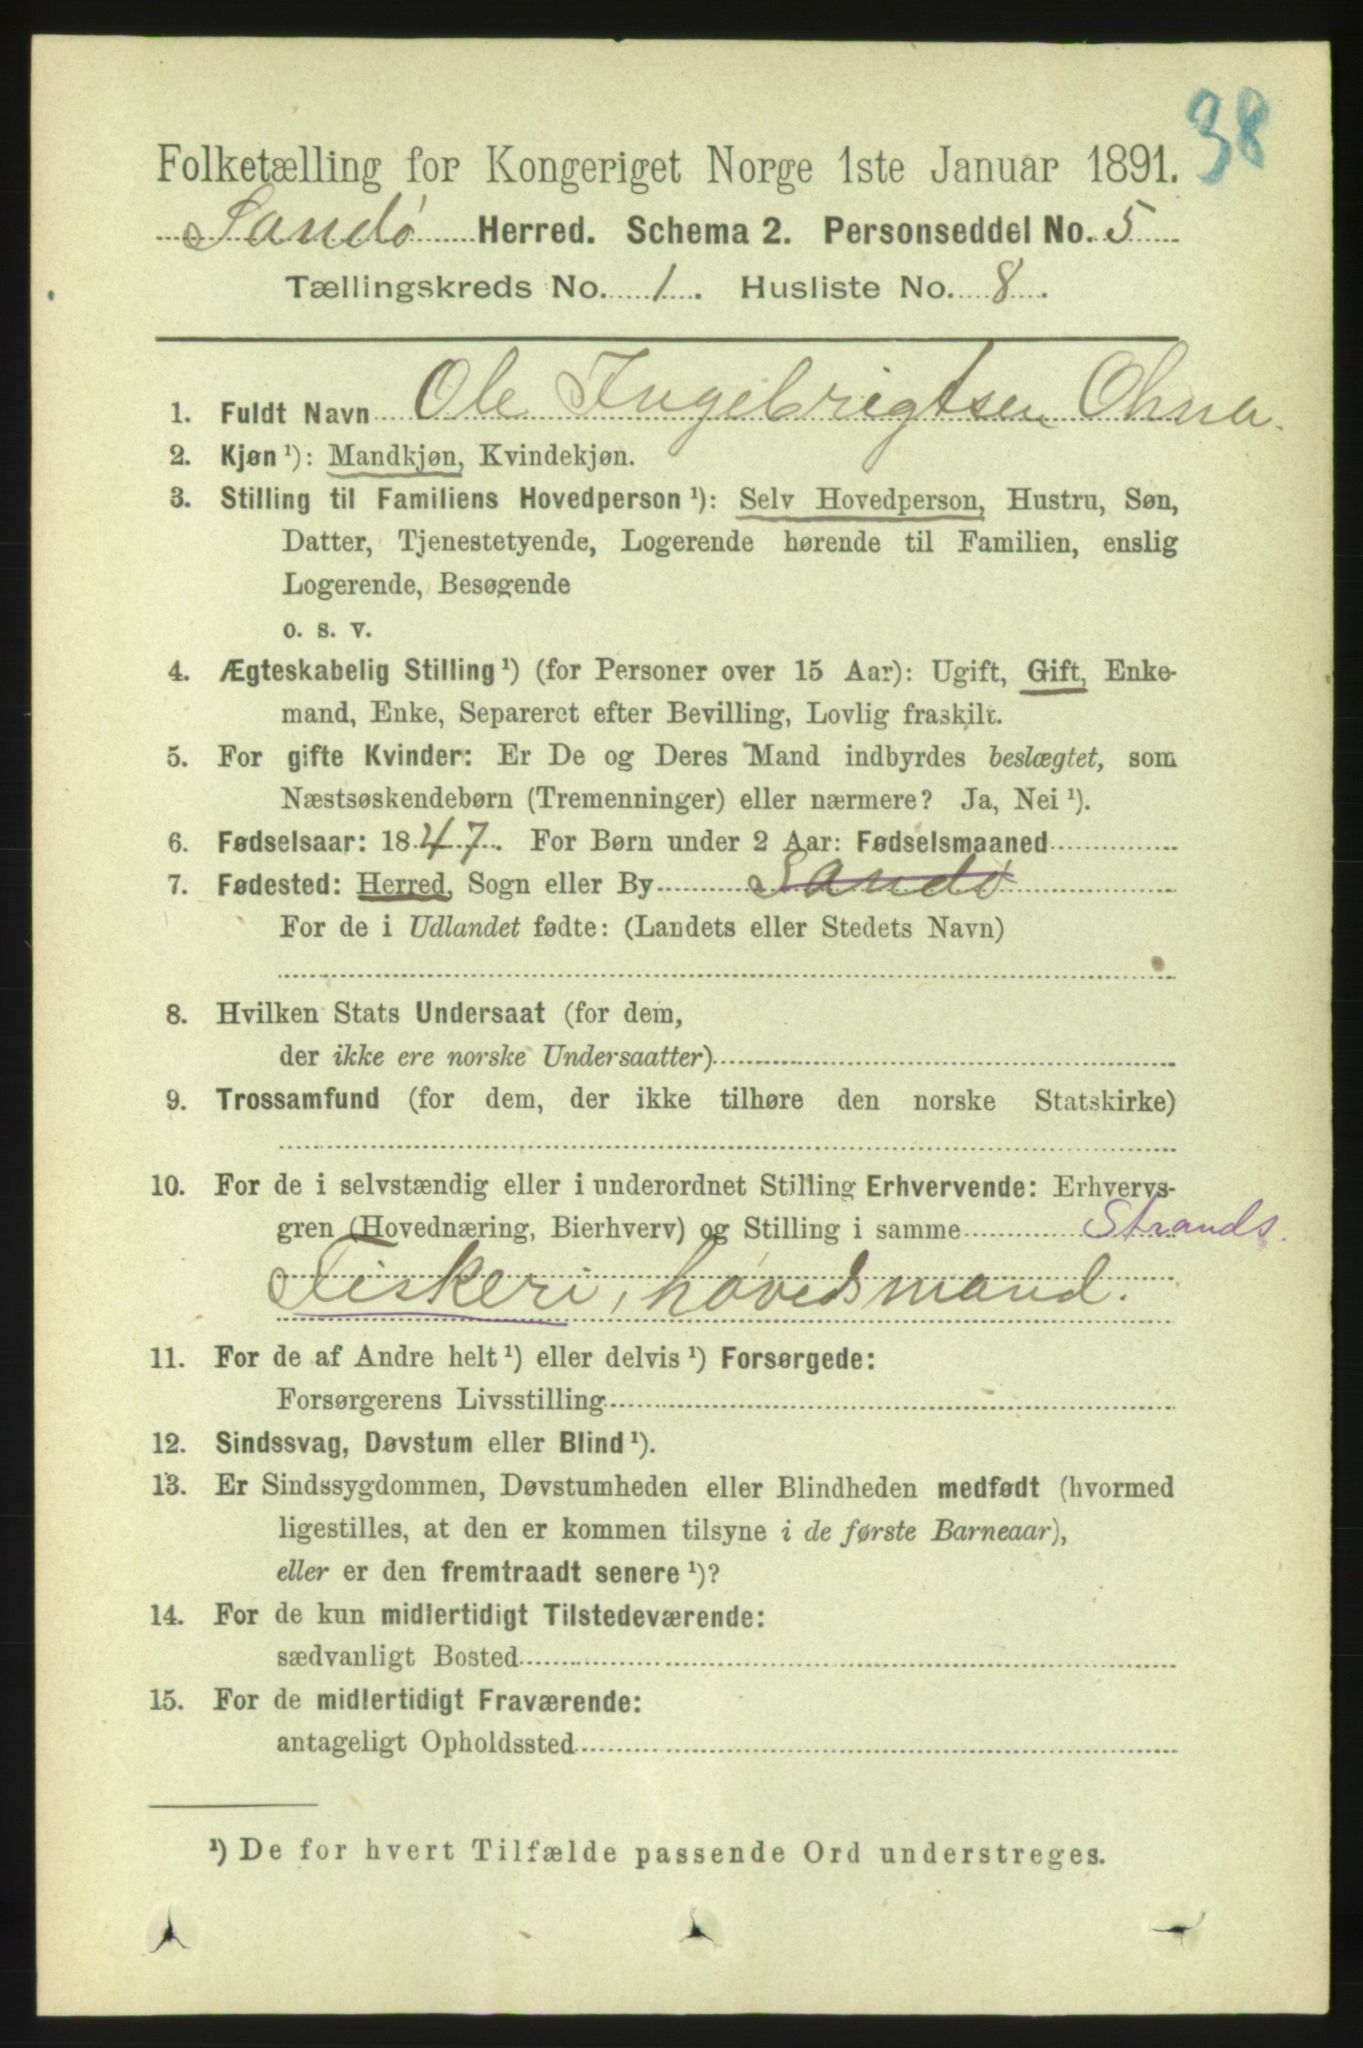 38
Folketælling for Kongeriget Norge 1ste Januar 1891.
Sandø Herred. Schema 2. Personseddel No. 5
Tællingskreds No. 1. Husliste No. 8.
1. Fuldt Navn Ole Ingebrigtsen Ohna.
2. Kjøn ¹): Mandkjøn, Kvindekjøn.
3. Stilling til Familiens Hovedperson ¹): Selv Hovedperson, Hustru, Søn,
Datter, Tjenestetyende, Logerende hørende til Familien, enslig
Logerende, Besøgende
o. s. v.
4. Ægteskabelig Stilling ¹) (for Personer over 15 Aar): Ugift, Gift, Enke-
mand, Enke, Separeret efter Bevilling, Lovlig fraskilt.
5. For gifte Kvinder: Er De og Deres Mand indbyrdes beslægtet, som
Næstsøskendebørn (Tremenninger) eller nærmere? Ja, Nei ¹).
6. Fødselsaar: 1847. For Børn under 2 Aar: Fødselsmaaned
7. Fødested: Herred, Sogn eller By Sandø
For de i Udlandet fødte: (Landets eller Stedets Navn)
8. Hvilken Stats Undersaat (for dem,
der ikke ere norske Undersaatter)
9. Trossamfund (for dem, der ikke tilhøre den norske Statskirke)
10. For de i selvstændig eller i underordnet Stilling Erhvervende: Erhvervs-
gren (Hovednæring, Bierhverv) og Stilling i samme Strands.
Fiskeri, høvedsmand.
11. For de af Andre helt ¹) eller delvis ¹) Forsørgede:
Forsørgerens Livsstilling
12. Sindssvag, Døvstum eller Blind ¹).
13. Er Sindssygdommen, Døvstumheden eller Blindheden medfødt (hvormed
ligestilles, at den er kommen tilsyne i de første Barneaar),
eller er den fremtraadt senere ¹)?
14. For de kun midlertidigt Tilstedeværende:
sædvanligt Bosted
15. For de midlertidigt Fraværende:
antageligt Opholdssted
¹) De for hvert Tilfælde passende Ord understreges.